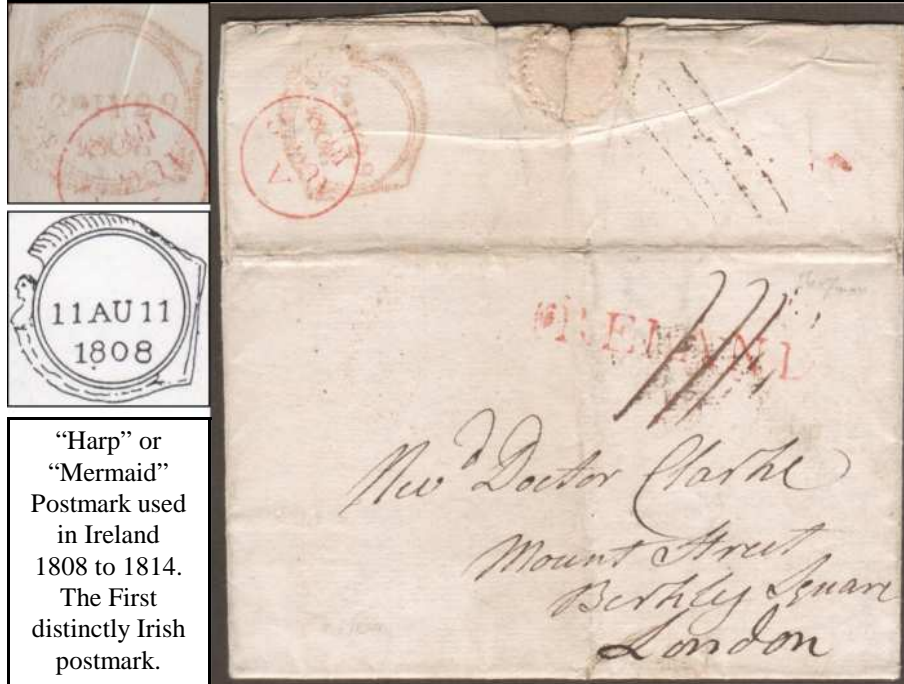 11 AU 11
1808
“Harp” or
“Mermaid”
Postmark used
in Ireland
1808 to 1814.
The First
distinctly Irish
postmark.
Revd Doctor Clarke
Mount Street
Berkley Square
London